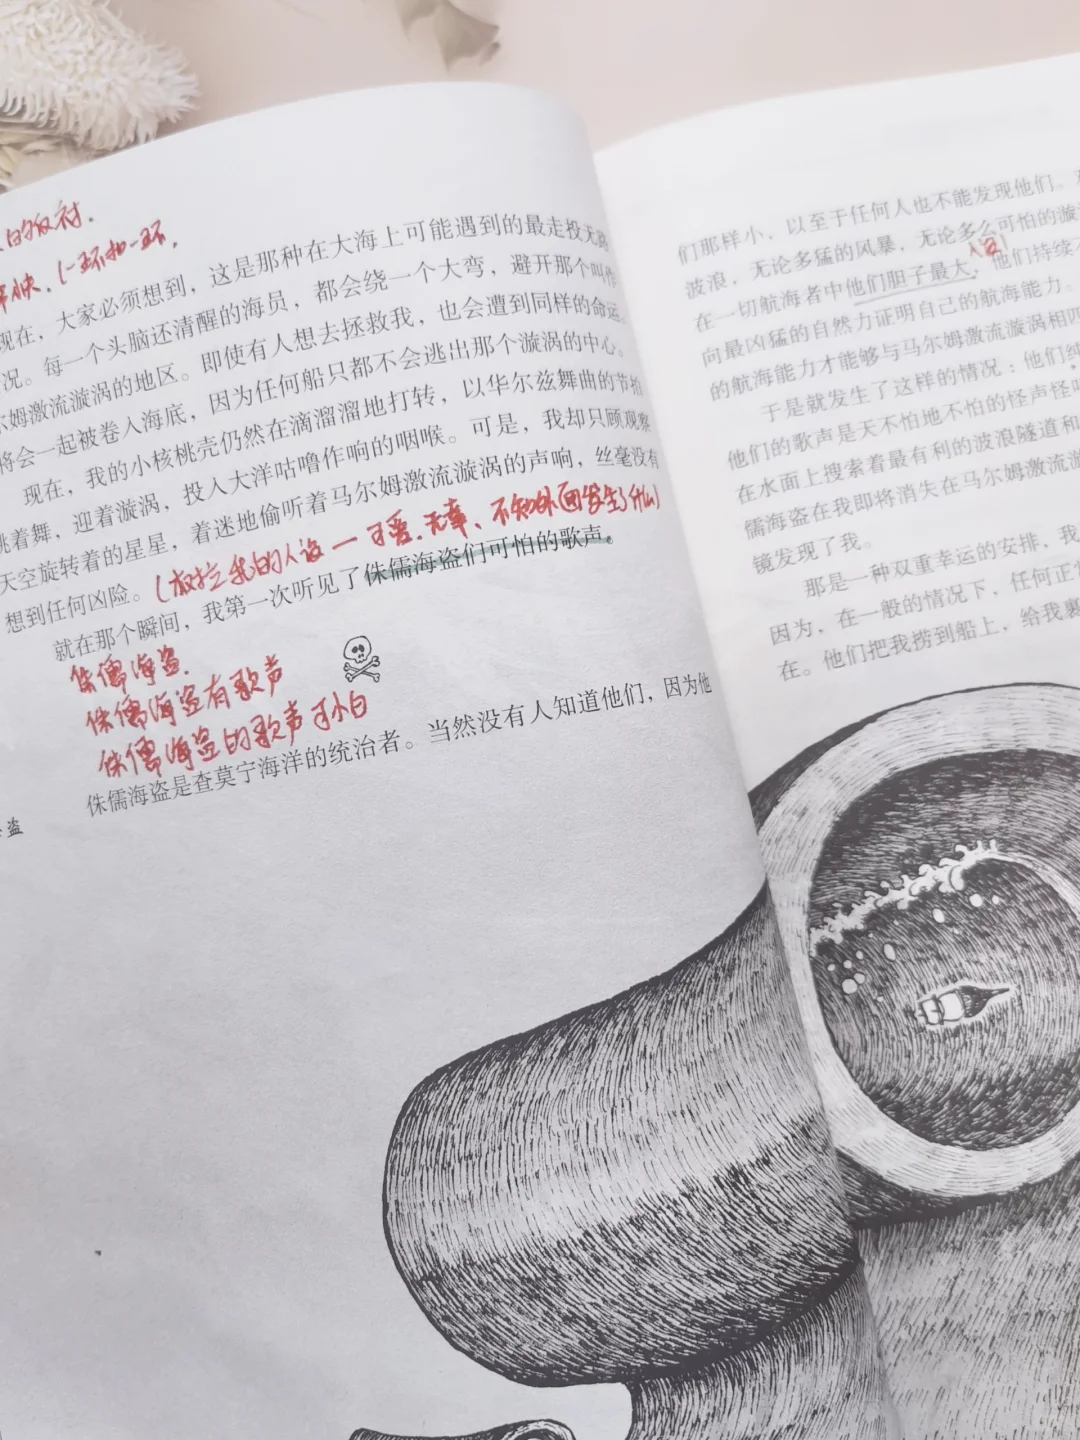 的反衬.
快.(一环扣一环.
现在，大家必须想到，这是那种在大海上可能遇到的最走投无
况。每一个头脑还清醒的海员，都会绕一个大弯，避开那个叫作
尔姆激流漩涡的地区。即使有人想去拯救我，也会遭到同样的命运。
将会一起被卷入海底，因为任何船只都不会逃出那个漩涡的中心。
现在，我的小核桃壳仍然在滴溜溜地打转，以华尔兹舞曲的节拍
跳着舞，迎着漩涡，投入大洋咕噜作响的咽喉。可是，我却只顾观察
天空旋转着的星星，着迷地偷听着马尔姆激流漩涡的声响，丝毫没有
想到任何凶险。
我的人设一可爱.无辜、不知外面发生了什么)
就在那个瞬间，我第一次听见了侏儒海盗们可怕的歌声。
侏儒海盗.
侏儒海盗有歌声
侏儒海盗的歌声可怕
侏儒海盗是查莫宁海洋的统治者。当然没有人知道他们，因为他
盗
们那样小，以至于任何人也不能发现他们。
波浪，无论多猛的风暴，无论多么可怕的漩
人设
在一切航海者中他们胆子最大，他们持续
向最凶猛的自然力证明自己的航海能力。
的航海能力才能够与马尔姆激流漩涡相匹
于是就发生了这样的情况：他们纯
他们的歌声是天不怕地不怕的怪声怪
在水面上搜索着最有利的波浪隧道和
儒海盗在我即将消失在马尔姆激流漩
镜发现了我。
那是一种双重幸运的安排，我
因为，在一般的情况下，任何正常
在。他们把我捞到船上，给我裹